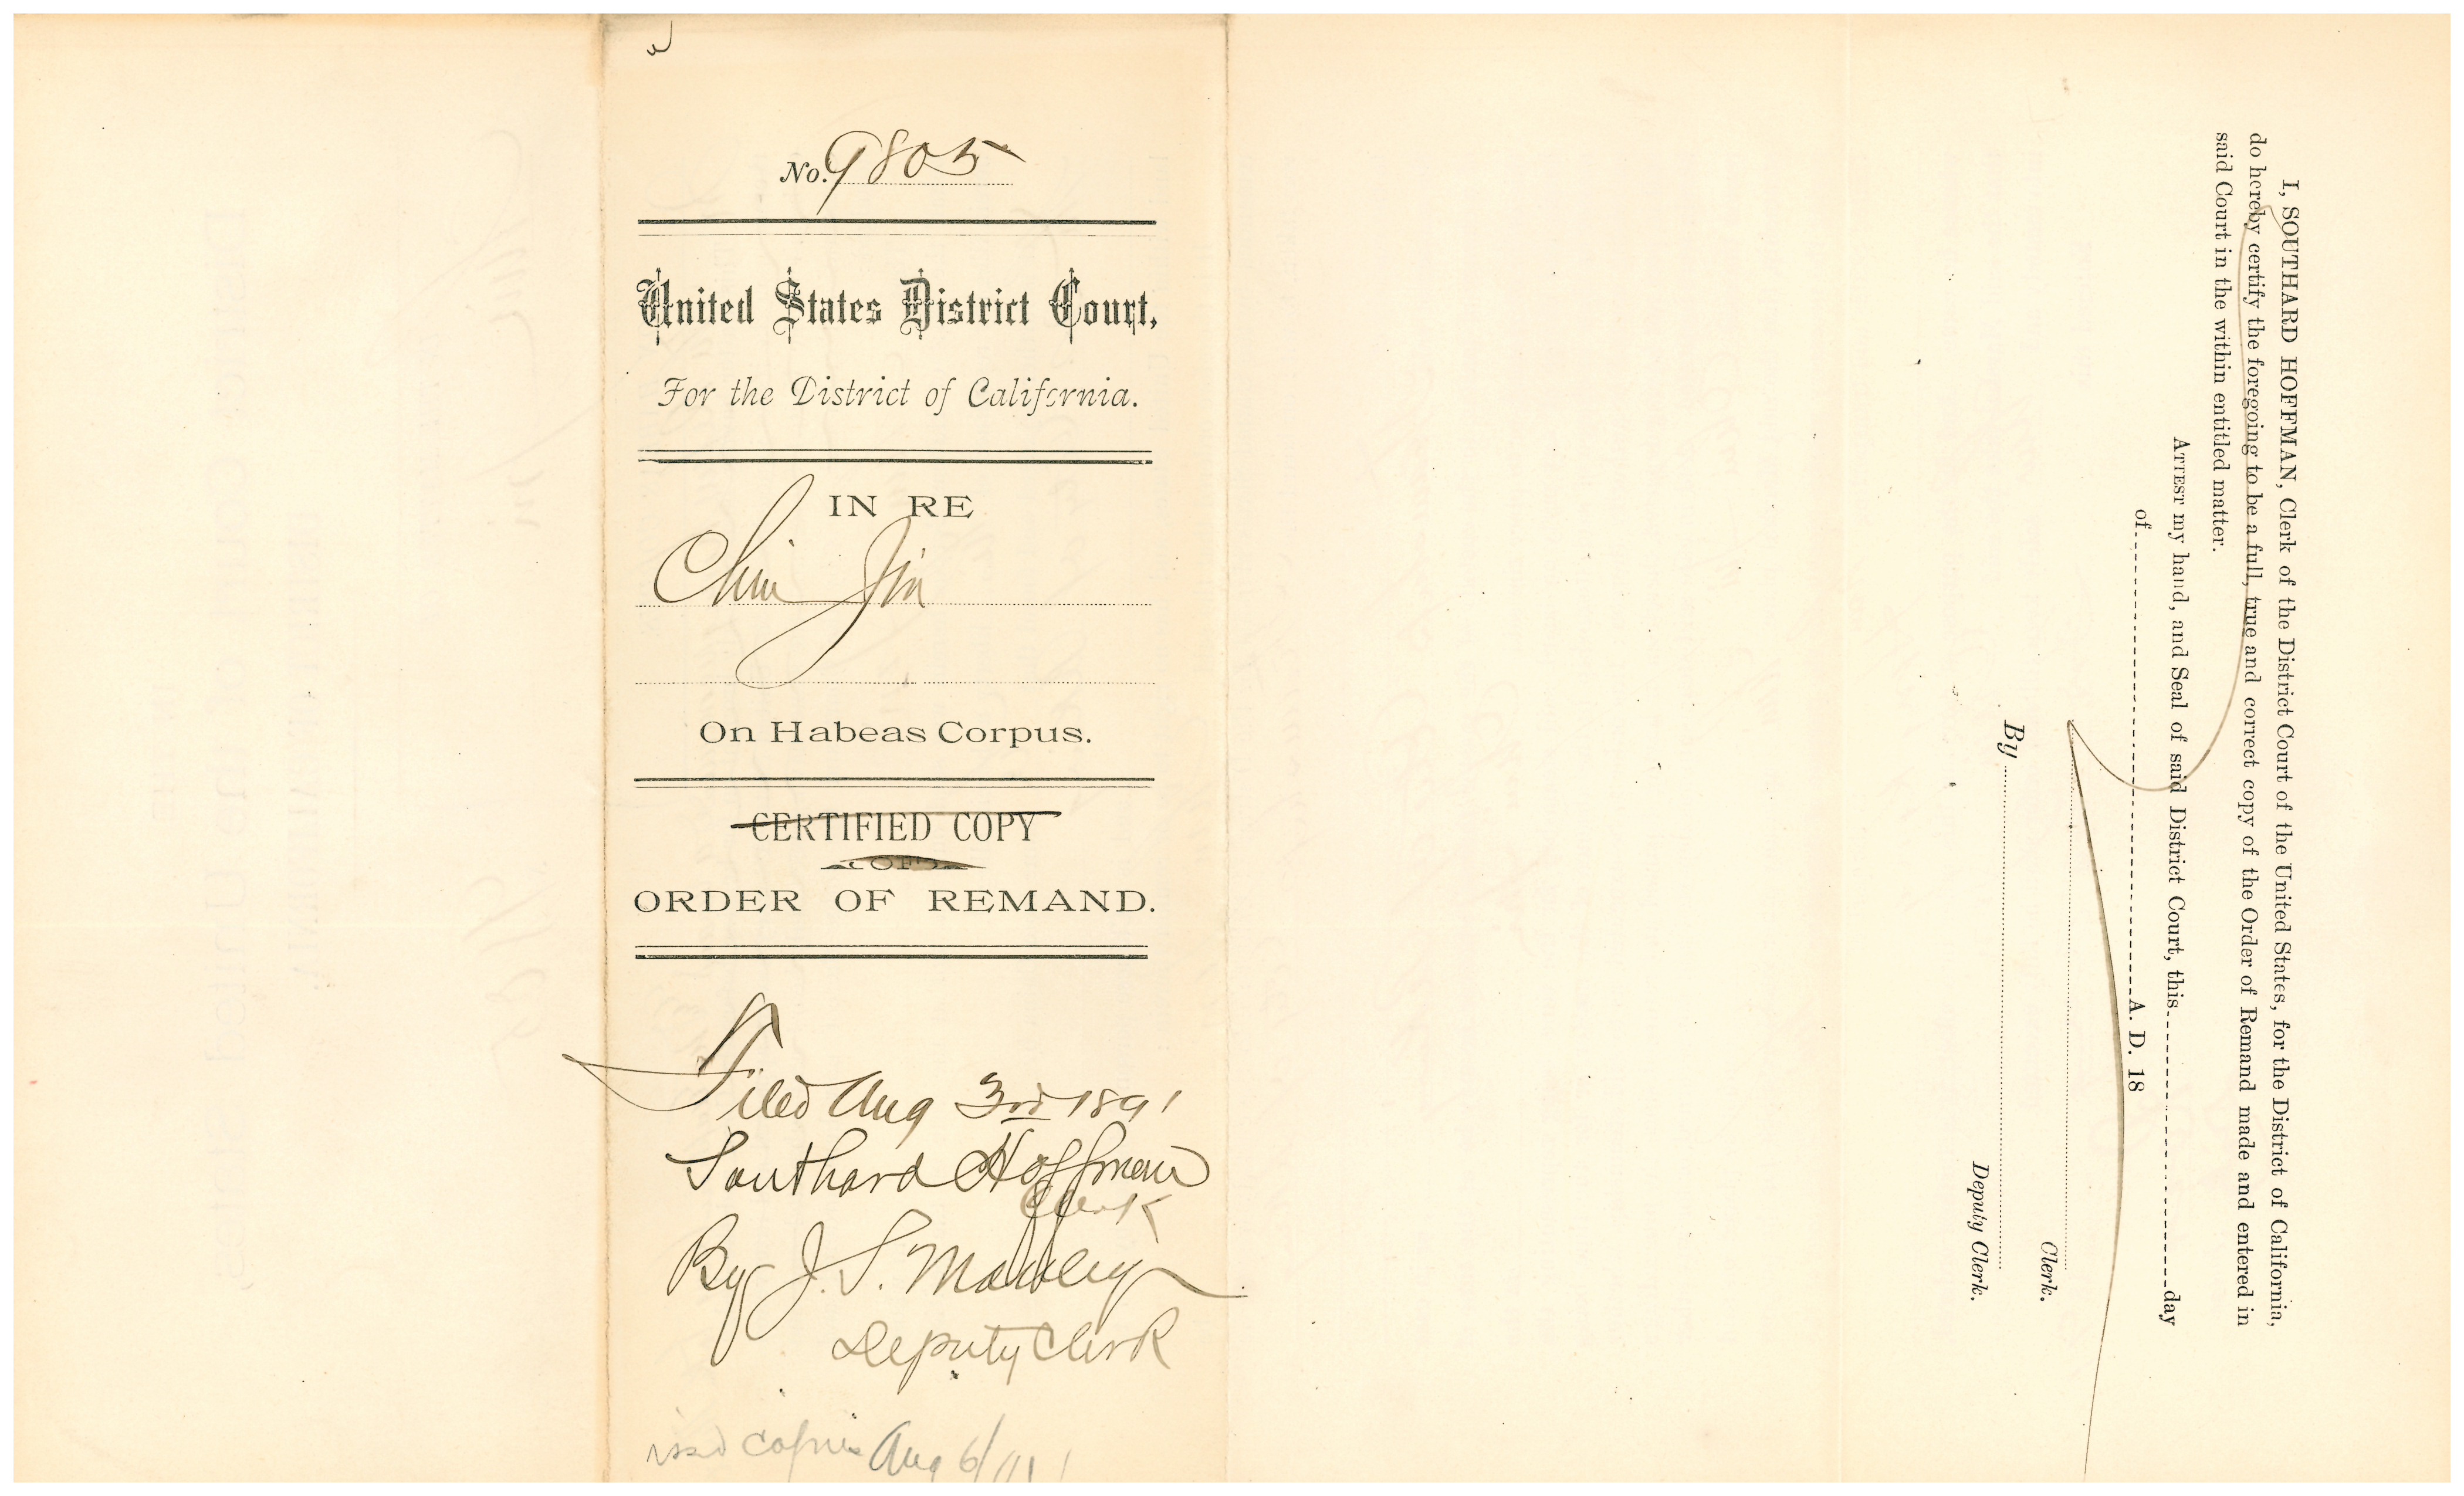 No. 9805
United States District Court,
For the District of California.
IN RE
Chin Jin
On Habeas Corpus.
CERTIFIED COPY
OF
ORDER OF REMAND.
Filed Aug 3rd 1891
Southard Hoffman
Clerk
By J. S. Manley
Deputy Clerk
issd copies Aug 6/91
I, SOUTHARD HOFFMAN, Clerk of the District Court of the United States, for the District of California,
do hereby certify the foregoing to be a full, true and correct copy of the Order of Remand made and entered in
said Court in the within entitled matter.
ATTEST my hand, and Seal of said District Court, this day
of A. D. 18
Clerk.
By
Deputy Clerk.